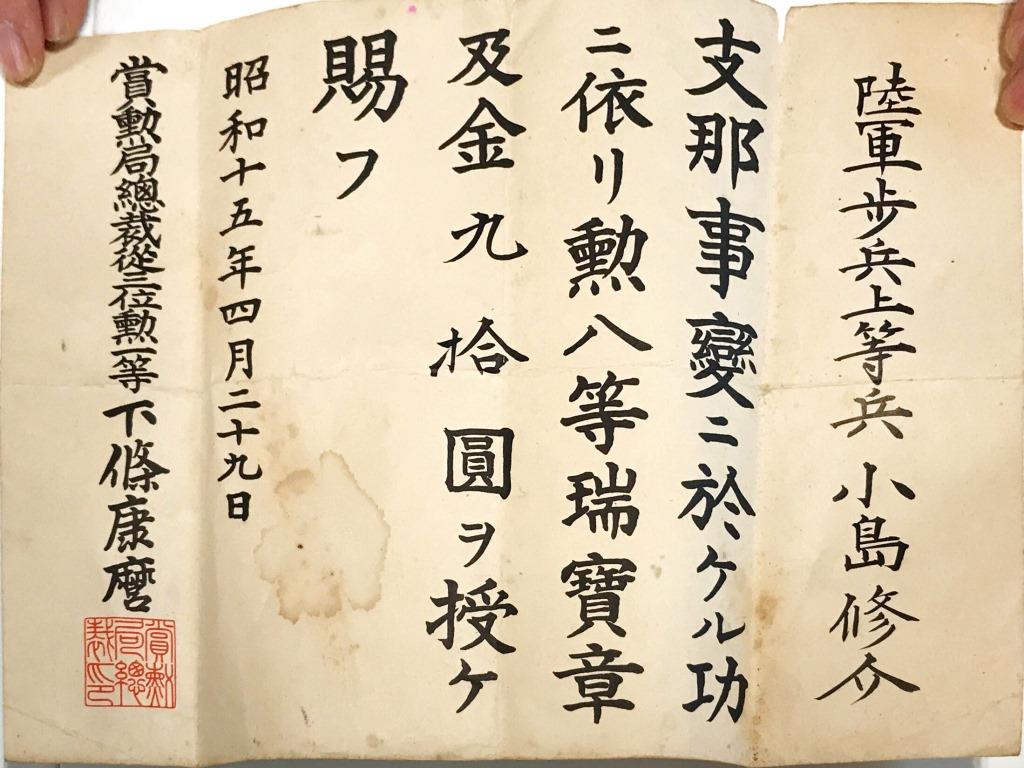 陸軍歩兵上等兵 小島修介
支那事變ニ於ケル功
ニ依リ勲八等瑞寶章
及金九拾圓ヲ授ケ
賜フ
昭和十五年四月二十九日
賞勲局總裁從三位勲一等下條康麿
賞勲局總裁印